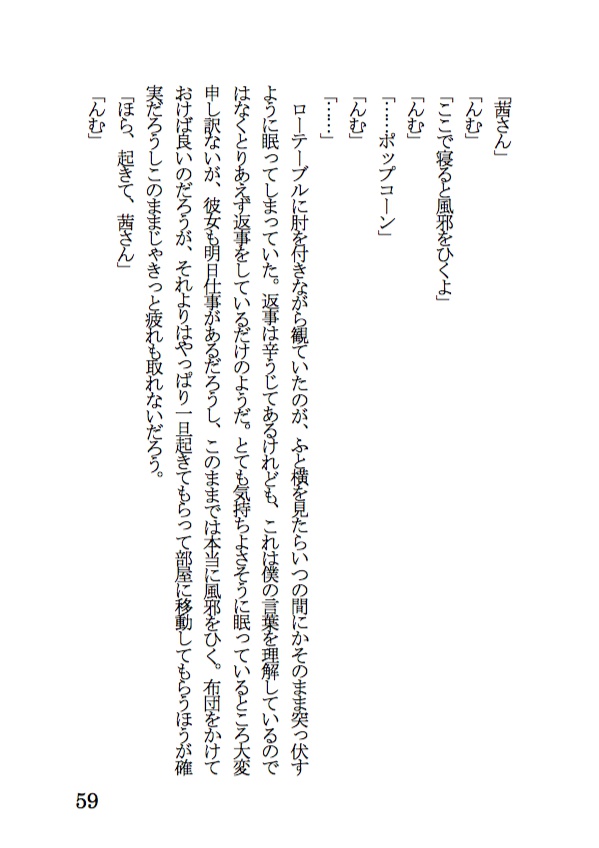 「茜さん」
「んむ」
「ここで寝ると風邪をひくよ」
「んむ」
「……ポップコーン」
「んむ」
「……」
　ローテーブルに肘を付きながら観ていたのが、ふと横を見たらいつの間にかそのまま突っ伏す
ように眠ってしまっていた。返事は辛うじてあるけれども、これは僕の言葉を理解しているので
はなくとりあえず返事をしているだけのようだ。とても気持ちよさそうに眠っているところ大変
申し訳ないが、彼女も明日仕事があるだろうし、このままでは本当に風邪をひく。布団をかけて
おけば良いのだろうが、それよりはやっぱり一旦起きてもらって部屋に移動してもらうほうが確
実だろうしこのままじゃきっと疲れも取れないだろう。
「ほら、起きて、茜さん」
「んむ」
59